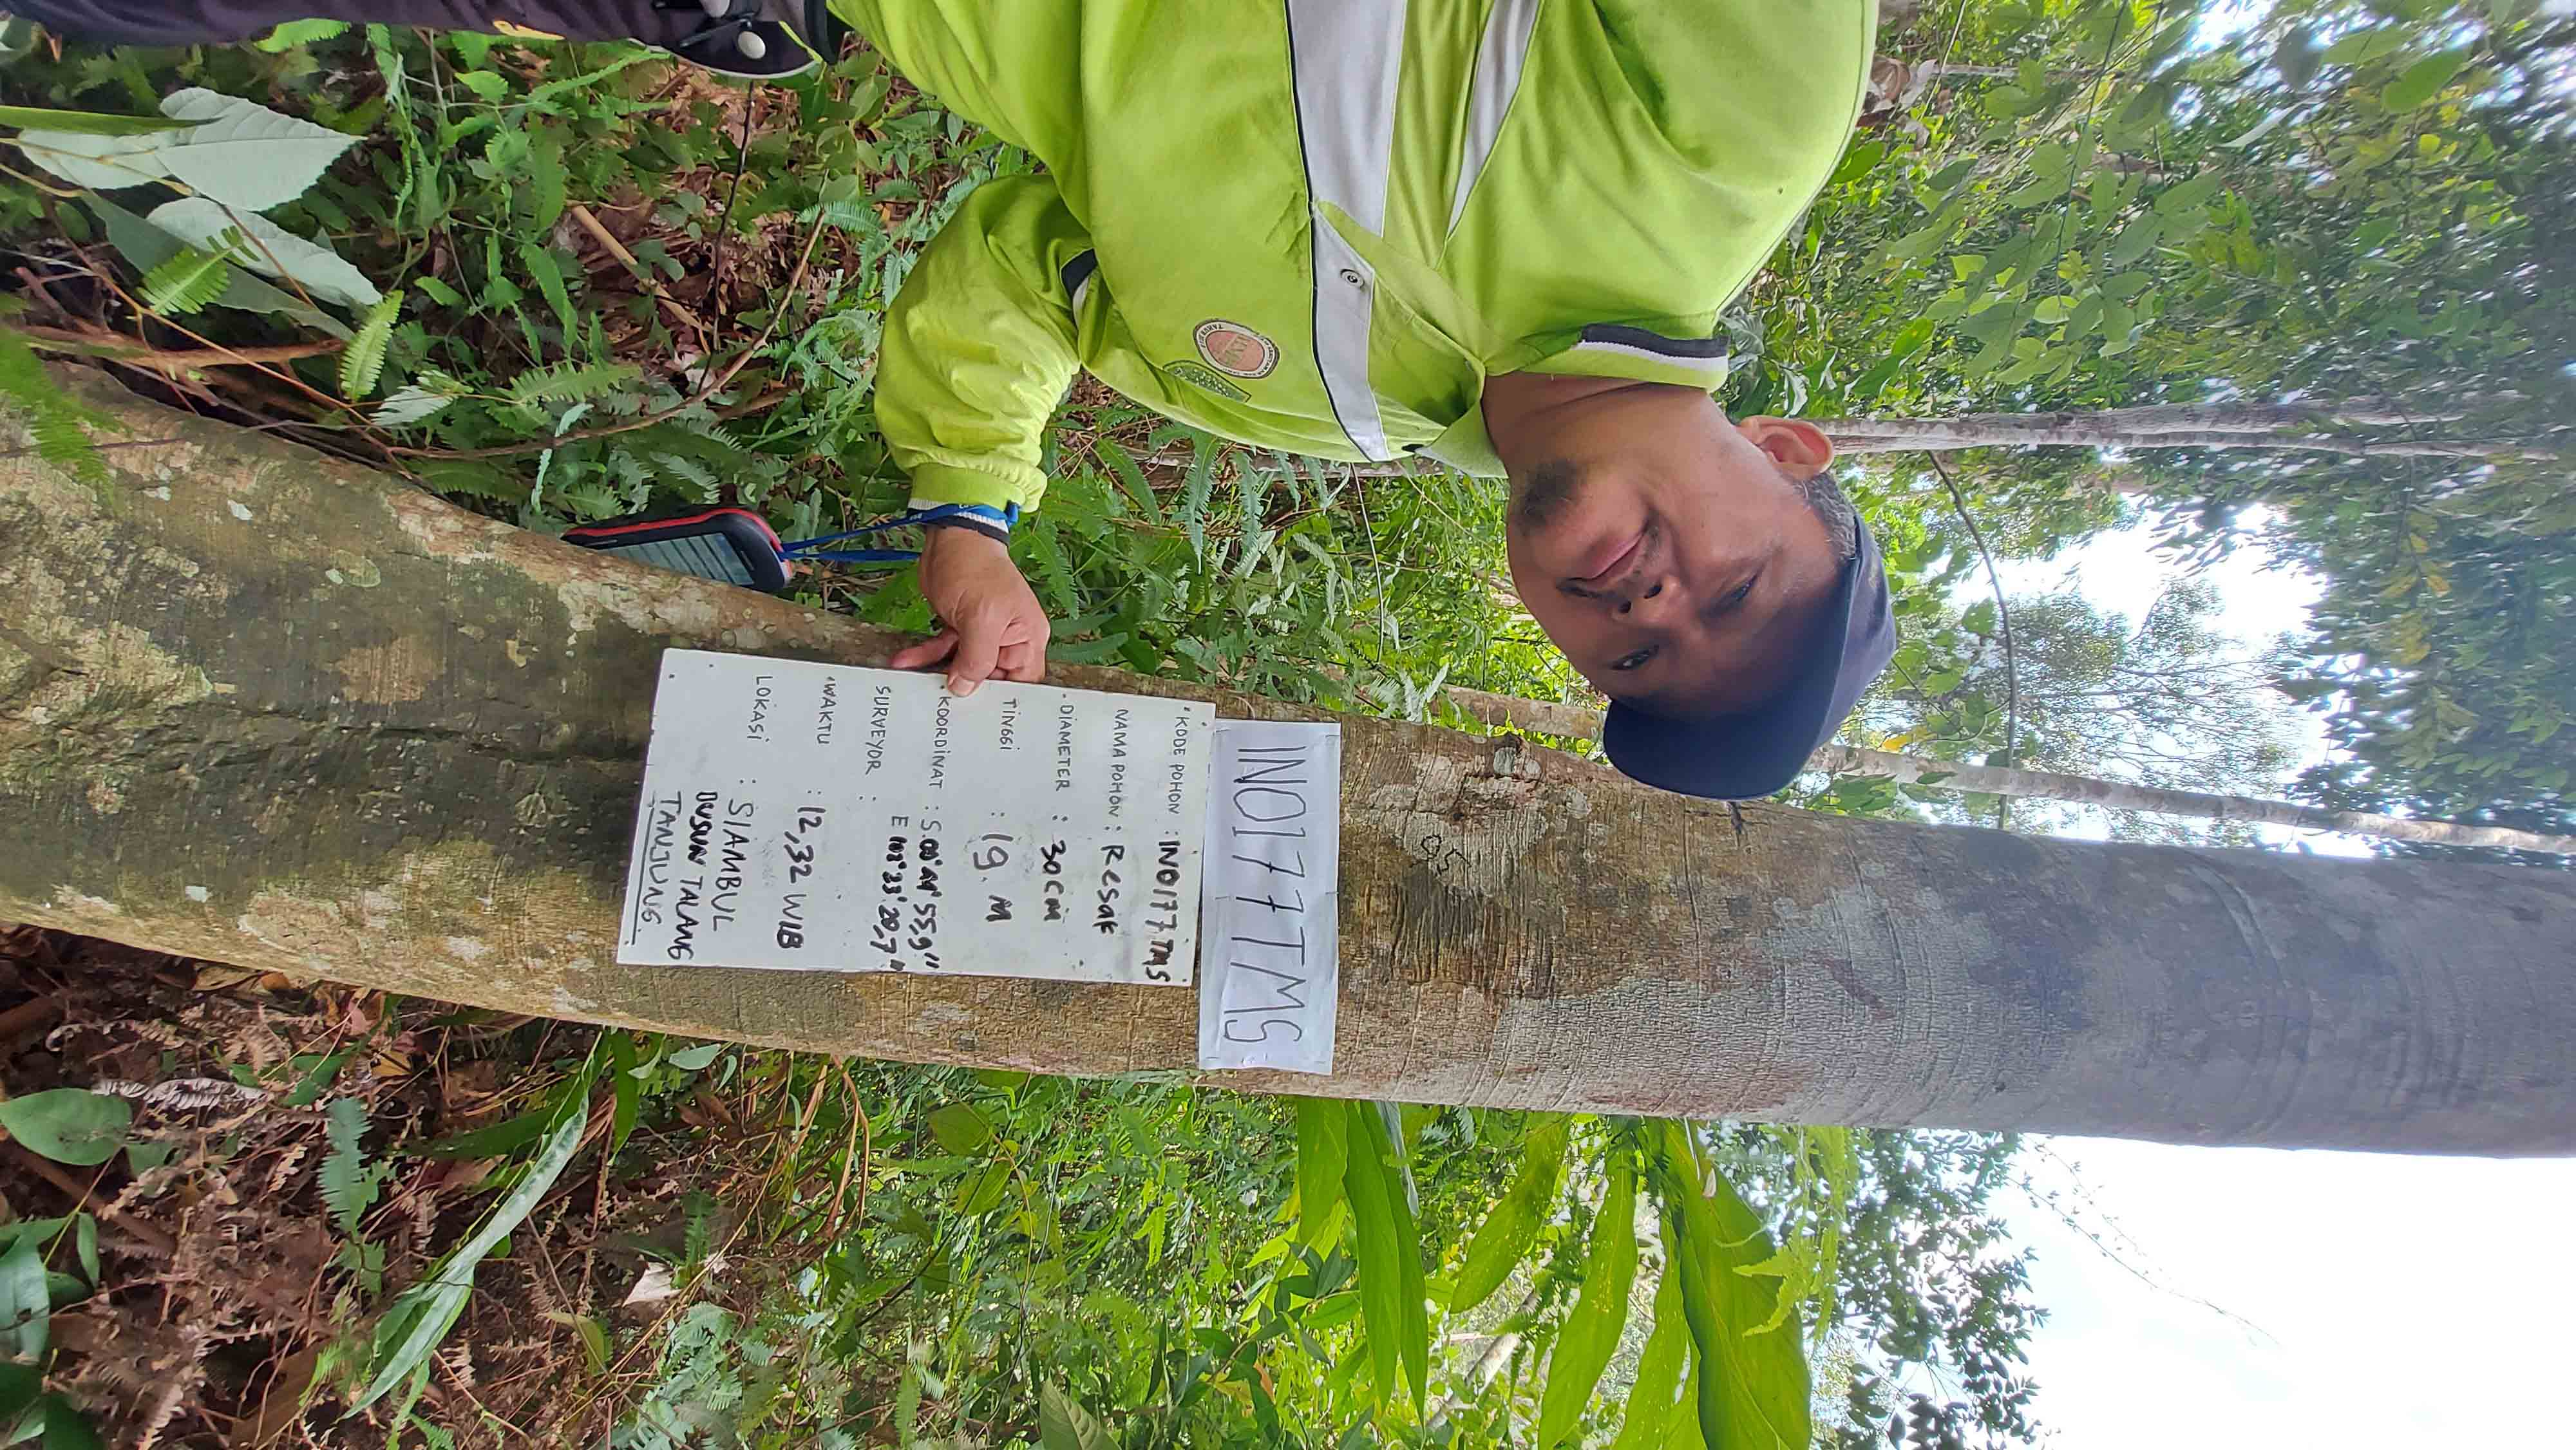 INO177TMS
KODE POHON : INO177 TMS
NAMA POHON : Resak
DIAMETER : 30 CM
TINGGI : 19. M
KOORDINAT : S. 00° 44' 55,9"
E 102° 33' 20,7"
SURVEYOR :
WAKTU : 12,32 WIB
LOKASI : SIAMBUL
DUSUN TALANG
TANJUNG
95